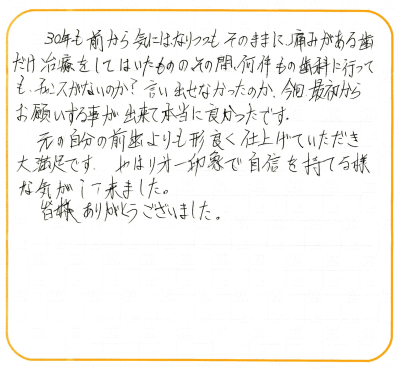 30年も前から気にはなりつつもそのままに、痛みがある歯
だけ治療をしてはいたものの、その間、何件もの歯科に行って
も、チャンスがないのか？言い出せなかったのか、今回最初から
お願いする事が出来て本当に良かったです。
元の自分の前歯よりも形良く仕上げていただき
大満足です。やはり第一印象で自信を持てる様
な気がして来ました。
皆様ありがとうございました。